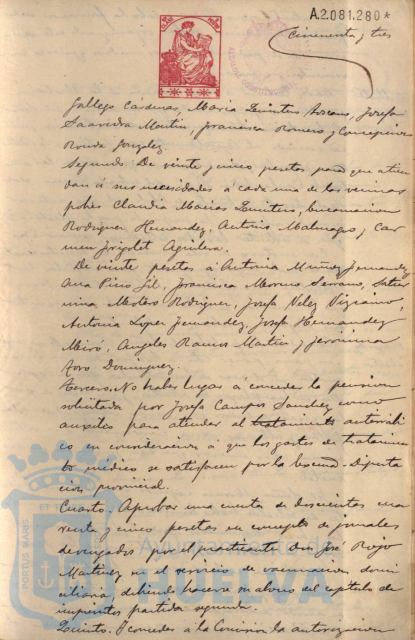 A.2.081.280*
Cincuenta y tres
Gallego Cárdenas, Maria Quintero, Josefa
Saavedra Martin, Francisca Romero y Concepcion
Ronda Gonzalez.
Segundo. De veinte y cinco pesetas para que atien
dan á sus necesidades á cada una de las vecinas
pobres Claudia Macias Quintero, Encarnacion
Rodriguez Hernandez, Antonia Malmagro y Car
men Grigolet Aguilera.
De veinte pesetas á Antonia Muñoz Fernandez
Ana Pino Gil, Francisca Moreno Serrano, Satur
nina Molero Rodriguez, Josefa Velez Vizcaino,
Antonia Lopez Fernandez, Josefa Hernandez
Miró, Angeles Ramos Martin y Jeronima
Toro Dominguez.
Tercero. No haber lugar á conceder la pension
solicitada por Josefa Campos Sanchez como
auxilio para atender al tratamiento antirrábi
co en consideracion á que los gastos de tratamien
to médico se satisfacen por la Excma. Diputa
cion provincial.
Cuarto. Aprobar una cuenta de doscientas cua
renta y cinco pesetas en concepto de jornales
devengados por el practicante Don José Rojo
Martinez en el servicio de vacunacion domi
ciliaria, debiendo hacerse su abono del capítulo de
imprevistos partida segunda.
Quinto. Conceder á la Comision la autorizacion
PORTUS MARIS
Ayuntamiento de
HUELVA